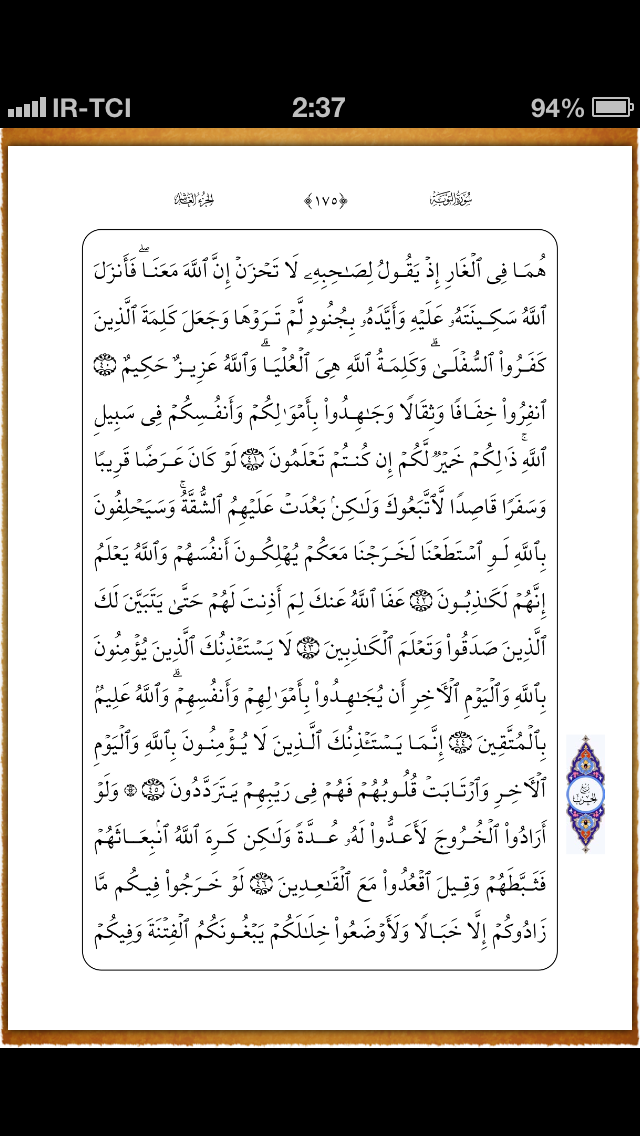 IR-TCI 2:37 94%
سُورَةُ التَّوْبَة ﴿١٧٥﴾ الجُزءُ العَاشِر
هُمَا فِى ٱلْغَارِ إِذْ يَقُولُ لِصَٰحِبِهِۦ لَا تَحْزَنْ إِنَّ ٱللَّهَ مَعَنَاۖ فَأَنزَلَ
ٱللَّهُ سَكِينَتَهُۥ عَلَيْهِ وَأَيَّدَهُۥ بِجُنُودٍ لَّمْ تَرَوْهَا وَجَعَلَ كَلِمَةَ ٱلَّذِينَ
كَفَرُوا۟ ٱلسُّفْلَىٰۗ وَكَلِمَةُ ٱللَّهِ هِىَ ٱلْعُلْيَاۗ وَٱللَّهُ عَزِيزٌ حَكِيمٌ ٤٠
ٱنفِرُوا۟ خِفَافًا وَثِقَالًا وَجَٰهِدُوا۟ بِأَمْوَٰلِكُمْ وَأَنفُسِكُمْ فِى سَبِيلِ
ٱللَّهِۚ ذَٰلِكُمْ خَيْرٌ لَّكُمْ إِن كُنتُمْ تَعْلَمُونَ ٤١ لَوْ كَانَ عَرَضًا قَرِيبًا
وَسَفَرًا قَاصِدًا لَّٱتَّبَعُوكَ وَلَٰكِنۢ بَعُدَتْ عَلَيْهِمُ ٱلشُّقَّةُۚ وَسَيَحْلِفُونَ
بِٱللَّهِ لَوِ ٱسْتَطَعْنَا لَخَرَجْنَا مَعَكُمْ يُهْلِكُونَ أَنفُسَهُمْ وَٱللَّهُ يَعْلَمُ
إِنَّهُمْ لَكَٰذِبُونَ ٤٢ عَفَا ٱللَّهُ عَنكَ لِمَ أَذِنتَ لَهُمْ حَتَّىٰ يَتَبَيَّنَ لَكَ
ٱلَّذِينَ صَدَقُوا۟ وَتَعْلَمَ ٱلْكَٰذِبِينَ ٤٣ لَا يَسْتَـْٔذِنُكَ ٱلَّذِينَ يُؤْمِنُونَ
بِٱللَّهِ وَٱلْيَوْمِ ٱلْـَٔاخِرِ أَن يُجَٰهِدُوا۟ بِأَمْوَٰلِهِمْ وَأَنفُسِهِمْۗ وَٱللَّهُ عَلِيمٌۢ
بِٱلْمُتَّقِينَ ٤٤ إِنَّمَا يَسْتَـْٔذِنُكَ ٱلَّذِينَ لَا يُؤْمِنُونَ بِٱللَّهِ وَٱلْيَوْمِ
ٱلْـَٔاخِرِ وَٱرْتَابَتْ قُلُوبُهُمْ فَهُمْ فِى رَيْبِهِمْ يَتَرَدَّدُونَ ٤٥ ۞ وَلَوْ
أَرَادُوا۟ ٱلْخُرُوجَ لَأَعَدُّوا۟ لَهُۥ عُدَّةً وَلَٰكِن كَرِهَ ٱللَّهُ ٱنۢبِعَاثَهُمْ
فَثَبَّطَهُمْ وَقِيلَ ٱقْعُدُوا۟ مَعَ ٱلْقَٰعِدِينَ ٤٦ لَوْ خَرَجُوا۟ فِيكُم مَّا
زَادُوكُمْ إِلَّا خَبَالًا وَلَأَوْضَعُوا۟ خِلَٰلَكُمْ يَبْغُونَكُمُ ٱلْفِتْنَةَ وَفِيكُمْ
ربع
الحزب